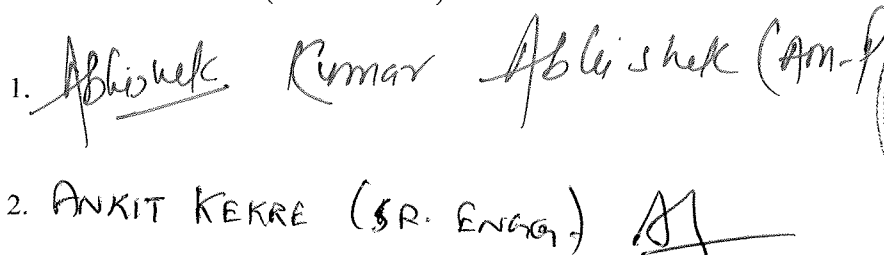 1. Abhishek Kumar Abhishek (AM-P
2. ANKIT KEKRE (SR. ENGG.)